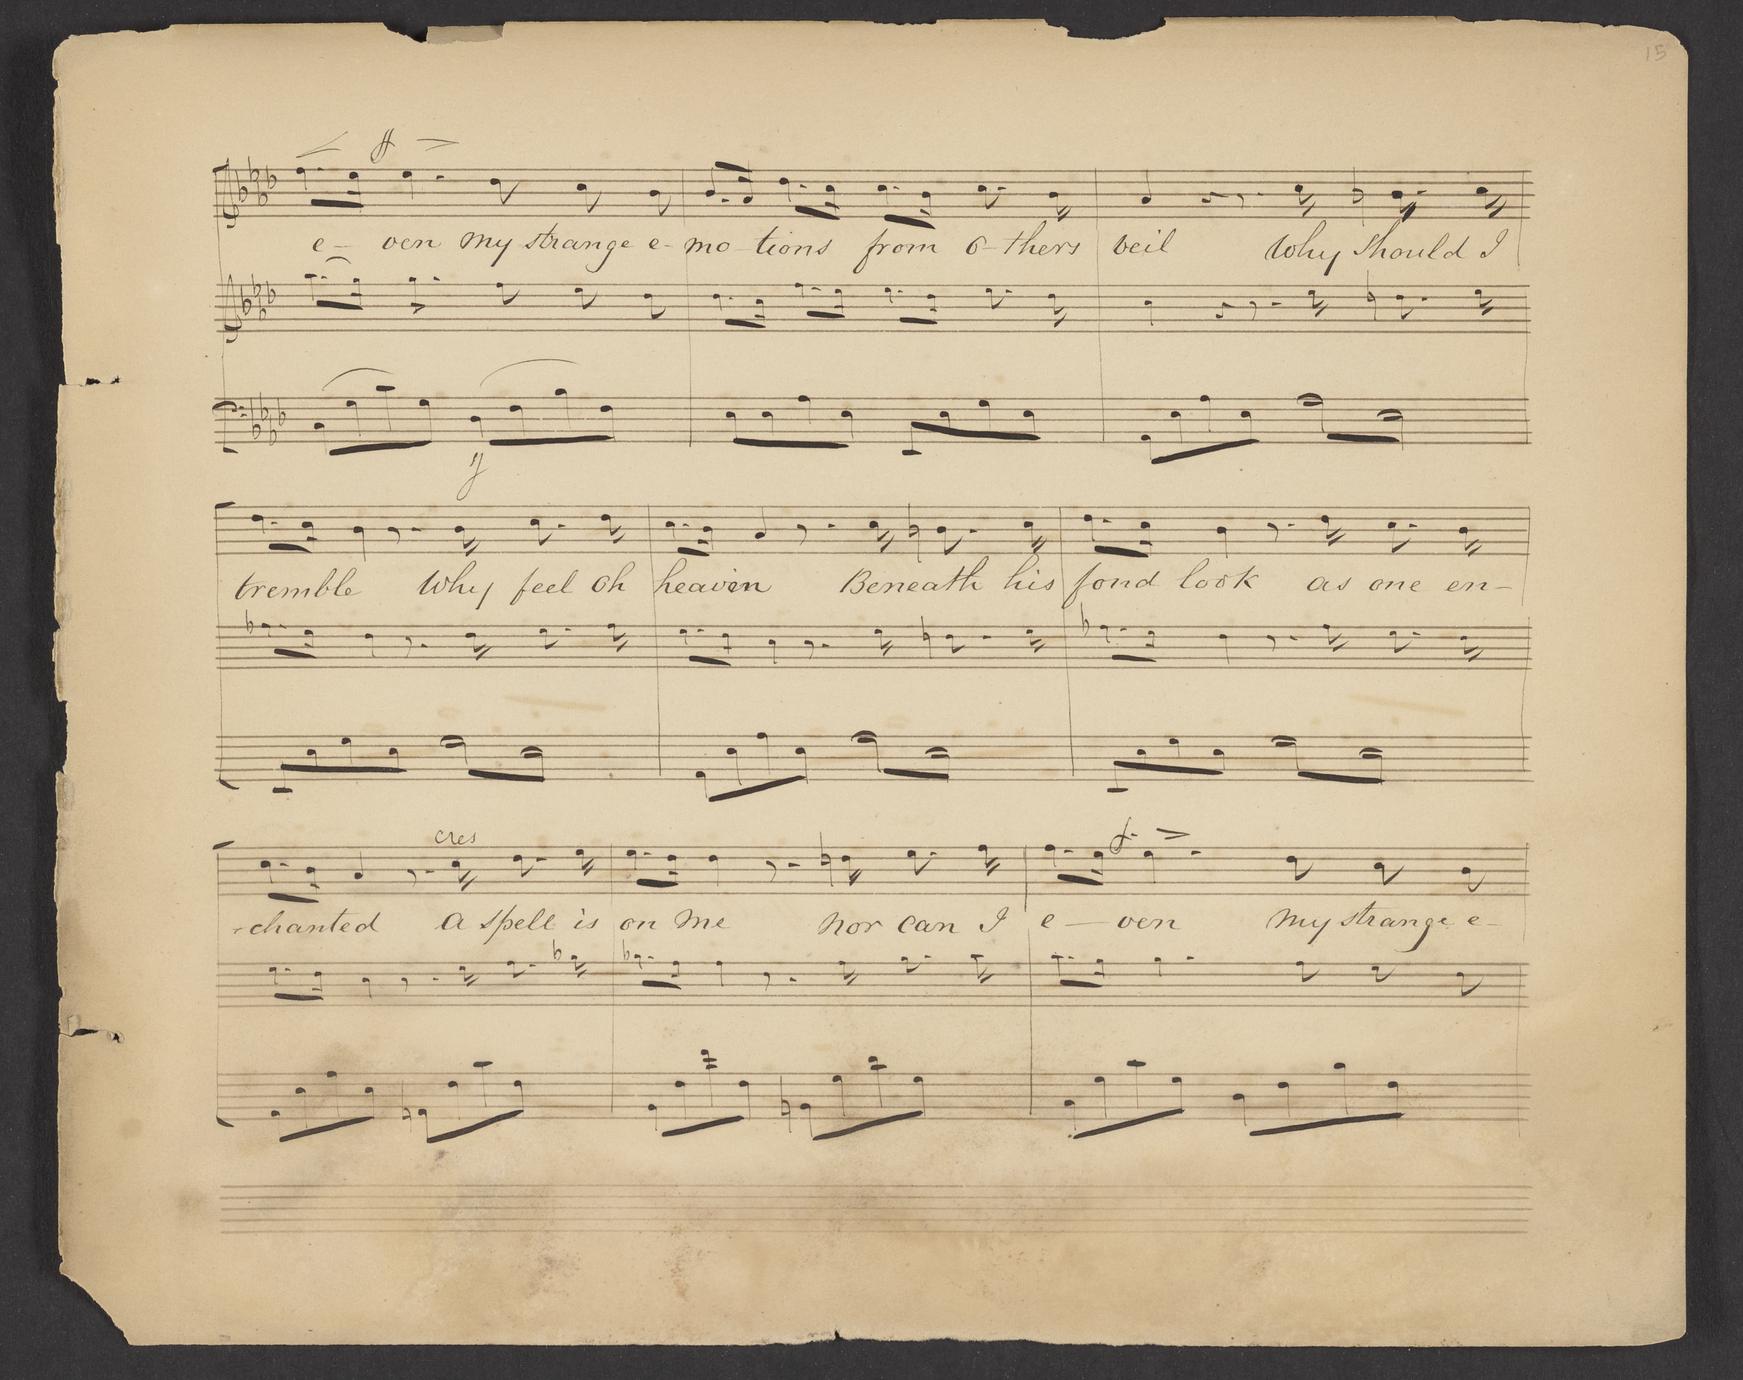 15
e- ven my strange e- mo-tions from o-thers veil Why should I
tremble Why feel oh heaven Beneath his fond look as one en-
-chanted a spell is on me nor can I e-ven my strange e-
cres
f